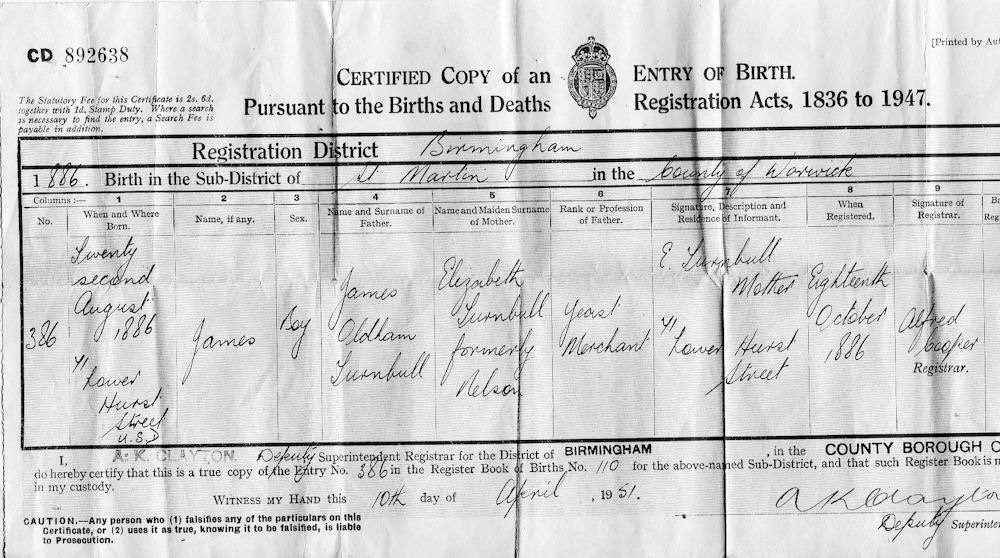 CD 892638
[Printed by Aut
The Statutory Fee for this Certificate is 2s. 6d.
together with 1d. Stamp Duty. Where a search
is necessary to find the entry, a Search Fee is
payable in addition.
CERTIFIED COPY of an ENTRY OF BIRTH.
Pursuant to the Births and Deaths Registration Acts, 1836 to 1947.
Registration District Birmingham
1886. Birth in the Sub-District of St Martin in the County of Warwick
Columns :— 1 2 3 4 5 6 7 8 9
No. When and Where Born. Name, if any. Sex. Name and Surname of Father. Name and Maiden Surname of Mother. Rank or Profession of Father. Signature, Description and Residence of Informant. When Registered. Signature of Registrar.
386
Twenty
second
August
1886
Lower
Hurst
Street
U.S.D
James
Boy
James
Oldham
Turnbull
Elizabeth
Turnbull
formerly
Nelson
Yeast
Merchant
E. Turnbull
Mother
Lower Hurst
Street
Eighteenth
October
1886
Alfred
Cooper
Registrar.
I, A. K. CLAYTON. Deputy Superintendent Registrar for the District of BIRMINGHAM, in the COUNTY BOROUGH O
do hereby certify that this is a true copy of the Entry No. 386 in the Register Book of Births No. 110 for the above-named Sub-District, and that such Register Book is n
in my custody.
WITNESS MY HAND this 10th day of April, 1951.
A K Clayto
Deputy Superinte
CAUTION.—Any person who (1) falsifies any of the particulars on this
Certificate, or (2) uses it as true, knowing it to be falsified, is liable
to Prosecution.